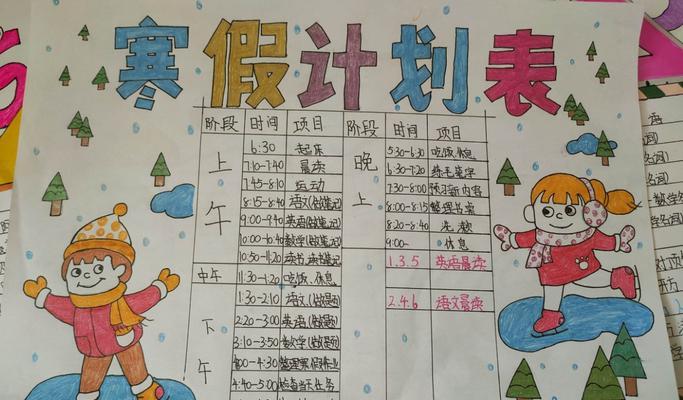 寒假计划表
阶段 时间 项目 阶段 时间 项目
上午
6:30 起床
7:10-7:40 晨读
7:45-8:10 运动
8:15-8:40 语文(做笔记)
9:00-9:40 英语(做笔记)
10:00-10:40 数学(做笔记)
10:50-11:20 读书,读书笔记
中午 11:30-1:20 吃饭、休息
下午
1:30-2:10 语文(做题)
2:20-3:00 英语(做题)
3:10-3:50 数学(做题)
4:00-4:30 整理寒假作业
4:40-5:00 检查当天任务
晚上
5:30-6:30 吃饭休息
6:30-7:20 练毛笔字
7:30-8:00 预习新内容
8:00-8:15 整理书桌
8:20-8:40 洗漱
9:00- 休息
1.3.5 英语晨读
2.4.6 语文晨读